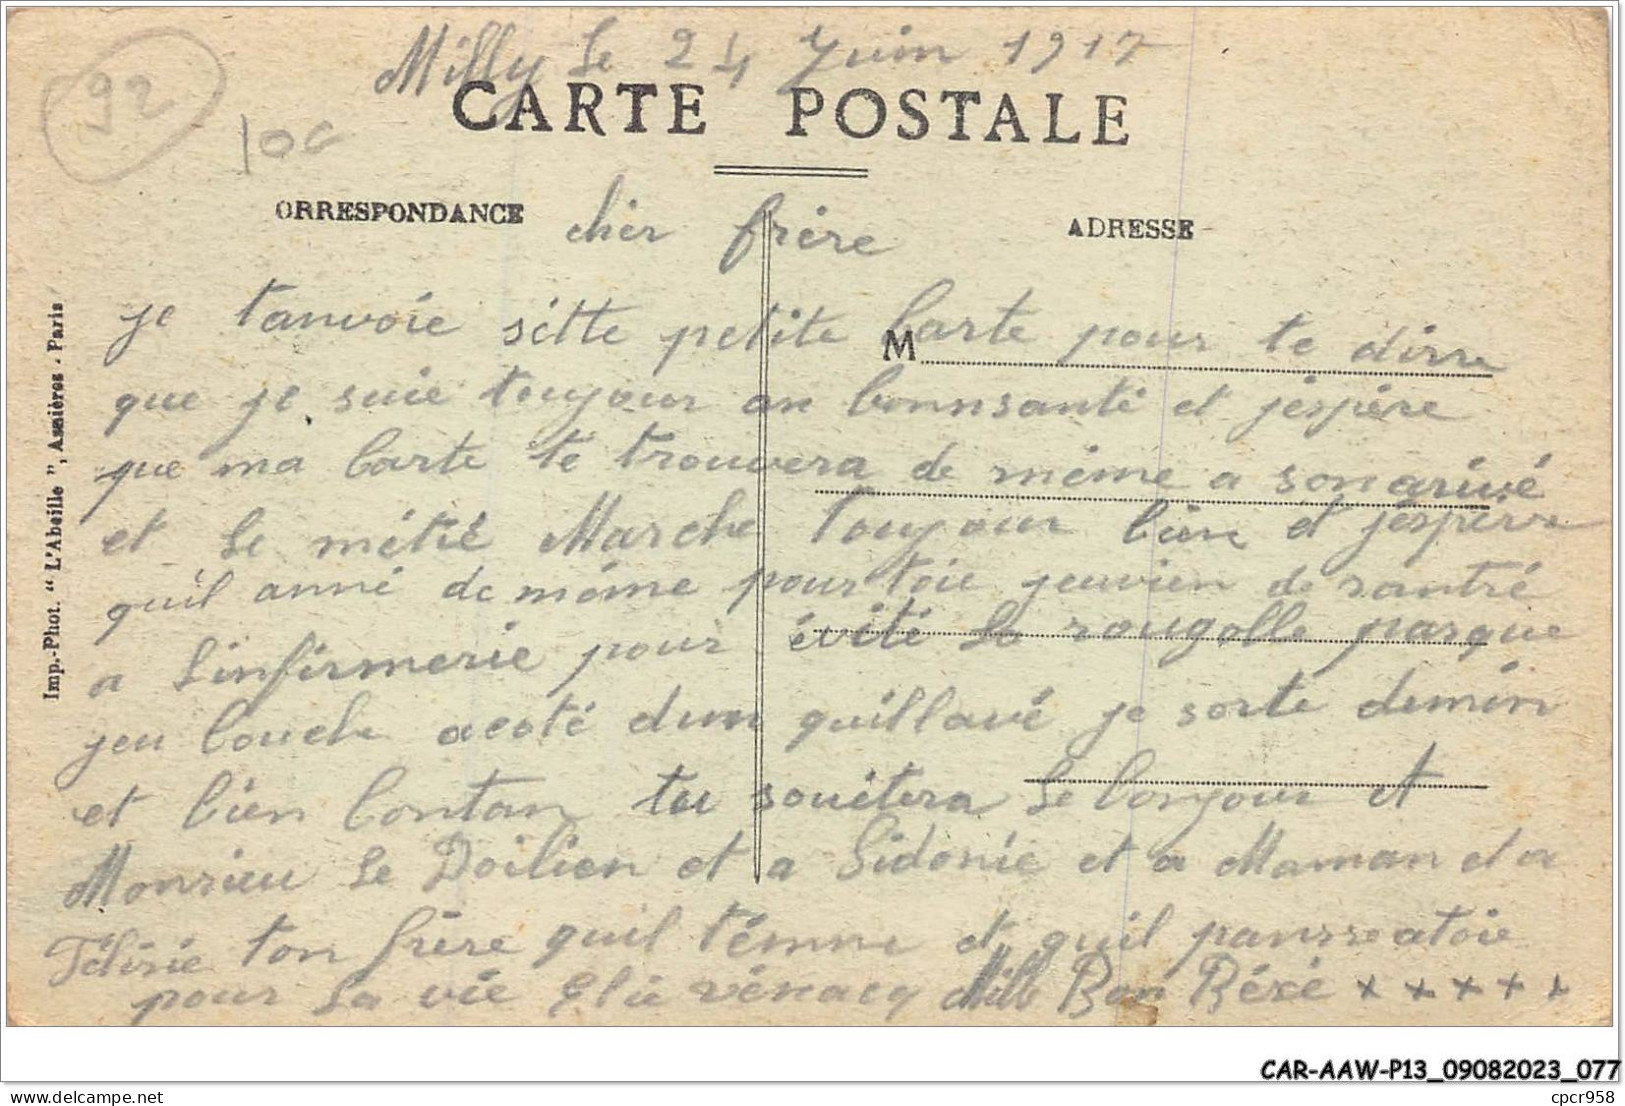 Milly le 24 Juin 1917
92
10c
CARTE POSTALE
ORRESPONDANCE
ADRESSE
cher frère
M
je tanvoie sètte petite Carte pour te dirre
que je suie toujour an bonnsanté et jéspére
que ma Carte te trouvera de même a son arivé
et le métié Marche toujour bien et jéspérre
quil anné de méme pour toie jeuvien de rantré
a linfirmerie pour évité la rougolle parque
jeu couche acoté dun quillavé je sorte demin
et bien Contan tu souétera le bonjour et
Monsieu le Doilien et a Sidonie et a Maman et a
Télisie ton frère quil témme et quil pansse atoie
pour la vie Elie vénacq Mille Bon Béxé x x x x x
Imp.-Phot. "L'Abeille", Asnières - Paris
CAR-AAW-P13_09082023_077
delcampe.net
cpcr958